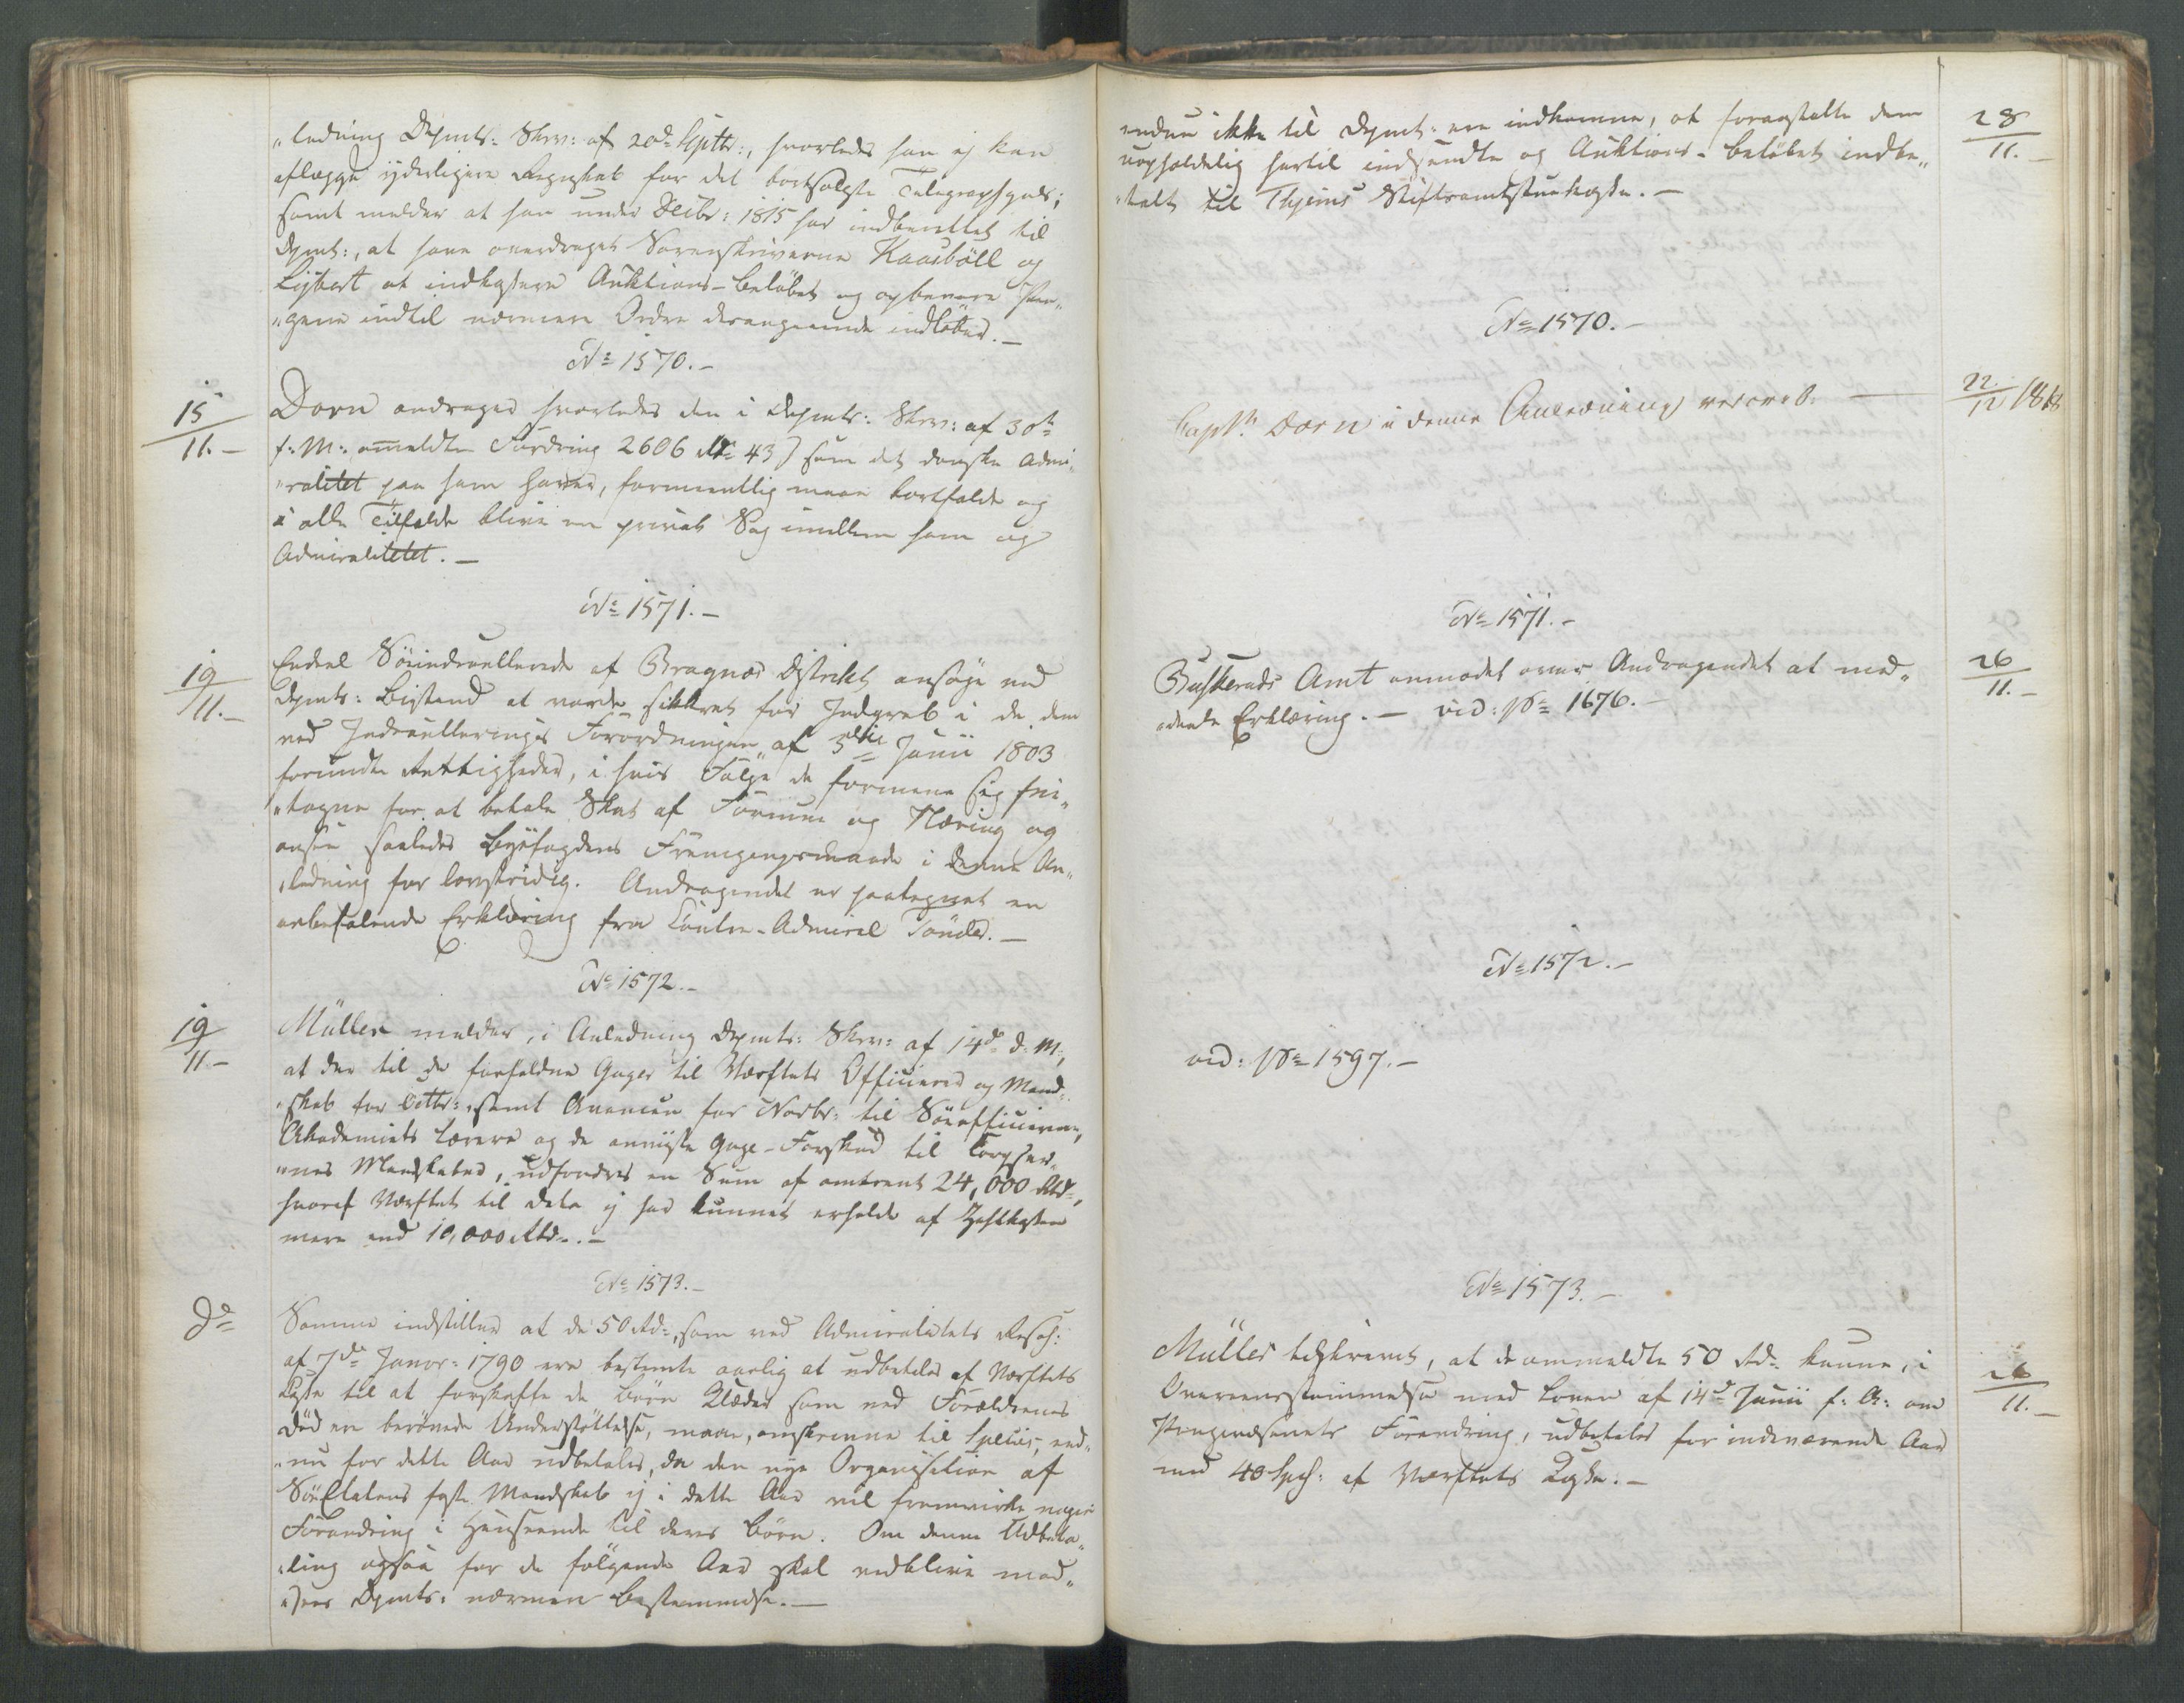 „ledning Dpmts: Skrv: af 20de Septbr:, hvorledes han ej kan
aflægge yderligere Regnskab for det bortsolgte Telegraphgods;
samt melder at han under Decbr: 1815 har indberettet til
Dpmt:, at have overdraget Sorenskriverne Kaasböll og
Lysholt at indkassere Auktions-Belöbet og opbevare Pen„
„gene indtil nærmere Ordre desangaaende indlöber.—
No 1570.—
15/11.—
Dorn andrager hvorledes den i Dpmts: Skrv: af 30te
f: M: ommeldte Fordring 2606 43) som det danske Admi„
„ralitet paa ham haver, formeentlig maae bortfalde og
i alle Tilfælde blive en privat Sag imellem ham og
Admiralitetet.—
No 1571.—
19/11.—
Endeel Söeindroullerede af Bragnæs District ansöge ved
Dpmts: Bistand at vorde sikkret for Indgreb i de dem
ved Indroulleringes Forordningen af 5te Junii 1803
forundte Rettigheder, i hvis Fölge de formene sig fri„
„tagne for at betale Skat af Formue og Næring og
ansee saaledes Byefogdens Fremgangsmaade i denne An„
„ledning for lovstridig. Andragendet er paategnet en
anbefalende Erklæring fra Contre-Admiral Tönder.—
No 1572.—
19/11.—
Müller melder, i Anledning Dpmts: Skrv: af 14de d: M:,
at der til de forfaldne Gager til Værftets Officierer og Mand„
„skab for Octbr: samt Avancen for Novbr: til Söeofficierer,
Akademiets Lærere og de Gage-Forskud til
„nes Mandskaber, udfordres en Sum af omtrent 24,000 Rbd:,
hvoraf Værftet til Dato ej har kunnet erholde af Zahlkassen
mere end 10,000 Rbd:.—
No 1573.—
Do
Samme indstiller at de 50 Rd:, som ved Admiralitets Resol:
af 7de Januar: 1790 ere bestemte aarlig at udbetales af Værftets
Casse til at forskaffe de Börn Klæder som ved Forældrenes
Död ere berövede Understöttelse, maae, omskrevne til Species, end„
„nu for dette Aar udbetales, da den nye Organisation af
SöeEtatens faste Mandskab ej i dette Aar vil fremvirke nogen
Forandring i Henseende til deres Börn. Om denne Udbeta„
„ling ogsaa for de fölgende Aar skal vedblive
Dpmts: nærmere Bestemmelse.—
endnu ikke til Dpmt: ere indkomne, at foranstalte dem
uopholdelig hertil indsendte og Auktions-Belöbet indbe„
„talt til Thjems Stiftsamtstuekasse.—
28/11.—
No 1570.—
Captn Dorn i denne Anledning
22/12 1818
No 1571.—
Buskeruds Amt anmodet over Andragendet at med„
„deele Erklæring.— vid: No 1676.—
26/11.—
No 1572.—
vid: No 1597.—
No 1573.—
Müller tilskrevet, at de ommeldte 50 Rd: kunne, i
Overeensstemmelse med Loven af 14de Junii f: A: om
Pengevæsenets Forandring, udbetales for indeværende Aar
med 40 Spec: af Værftets Kasse.—
26/11.—